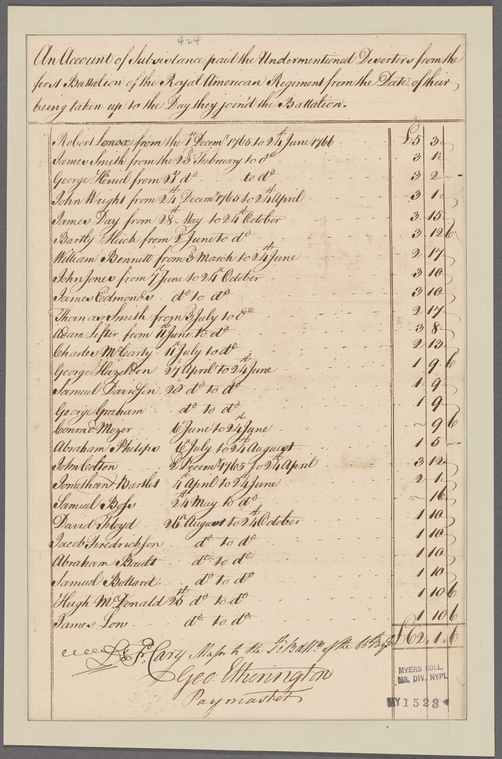 424
An Account of Subsistance paid the Undermentioned Deserters from the
first Battalion of the Royal American Regiment from the Date of their
being taken up to the Day they join'd the Battalion.
Robert Lenox from the 1st Decemr 1765 to 24th June 1766 £5 3
James Smith from the 23d February to do 3 1
George Himiel from 27 do to do 3 2 -
John Wright from 24th Decemr 1765 to 24th April 3 1
James Day from 28th May to 24th October 3 15
Bartly from 2d June to do 3 12 6
William Bennett from 3d March to 24th June 2 17
John Jones from 7th June to 24th October 3 10
James Edmonds do to do 3 10
Thomas Smith from 3d July to do 2 17
Adam from 11th June to do 3 8
Charles McCarty 11th July to do 2 13
George Hazelton 27 April to 24th June 1 9 6
Samuel Davidson 28 do to do 1 9
George Graham do to do 1 9
Conrad Mozer 6th June to 24th June ~ 9 6
Abraham Philips 6th July to 24th August 1 5 -
John Cotton 2d Decemr 1765 to 24th April 3 12
Jonathan Bartlet 4th April to 24th June 2 1
Samuel Boss 24th May to do ~ 16
David Floyd 26th August to 24th October 1 10
Jacob Fredrickson do to do 1 10
Abraham Boult do to do 1 10
Samuel Bottard do to do 1 10
Hugh McDonald 25th do to do 1 10 6
James Low do to do 1 10 6
£62 1 6
Cary Major to the 1st Battn of the 60 Regt
Geo. Etherington
Paymaster
MYERS COLL.
MS. DIV. NYPL
MY 1523